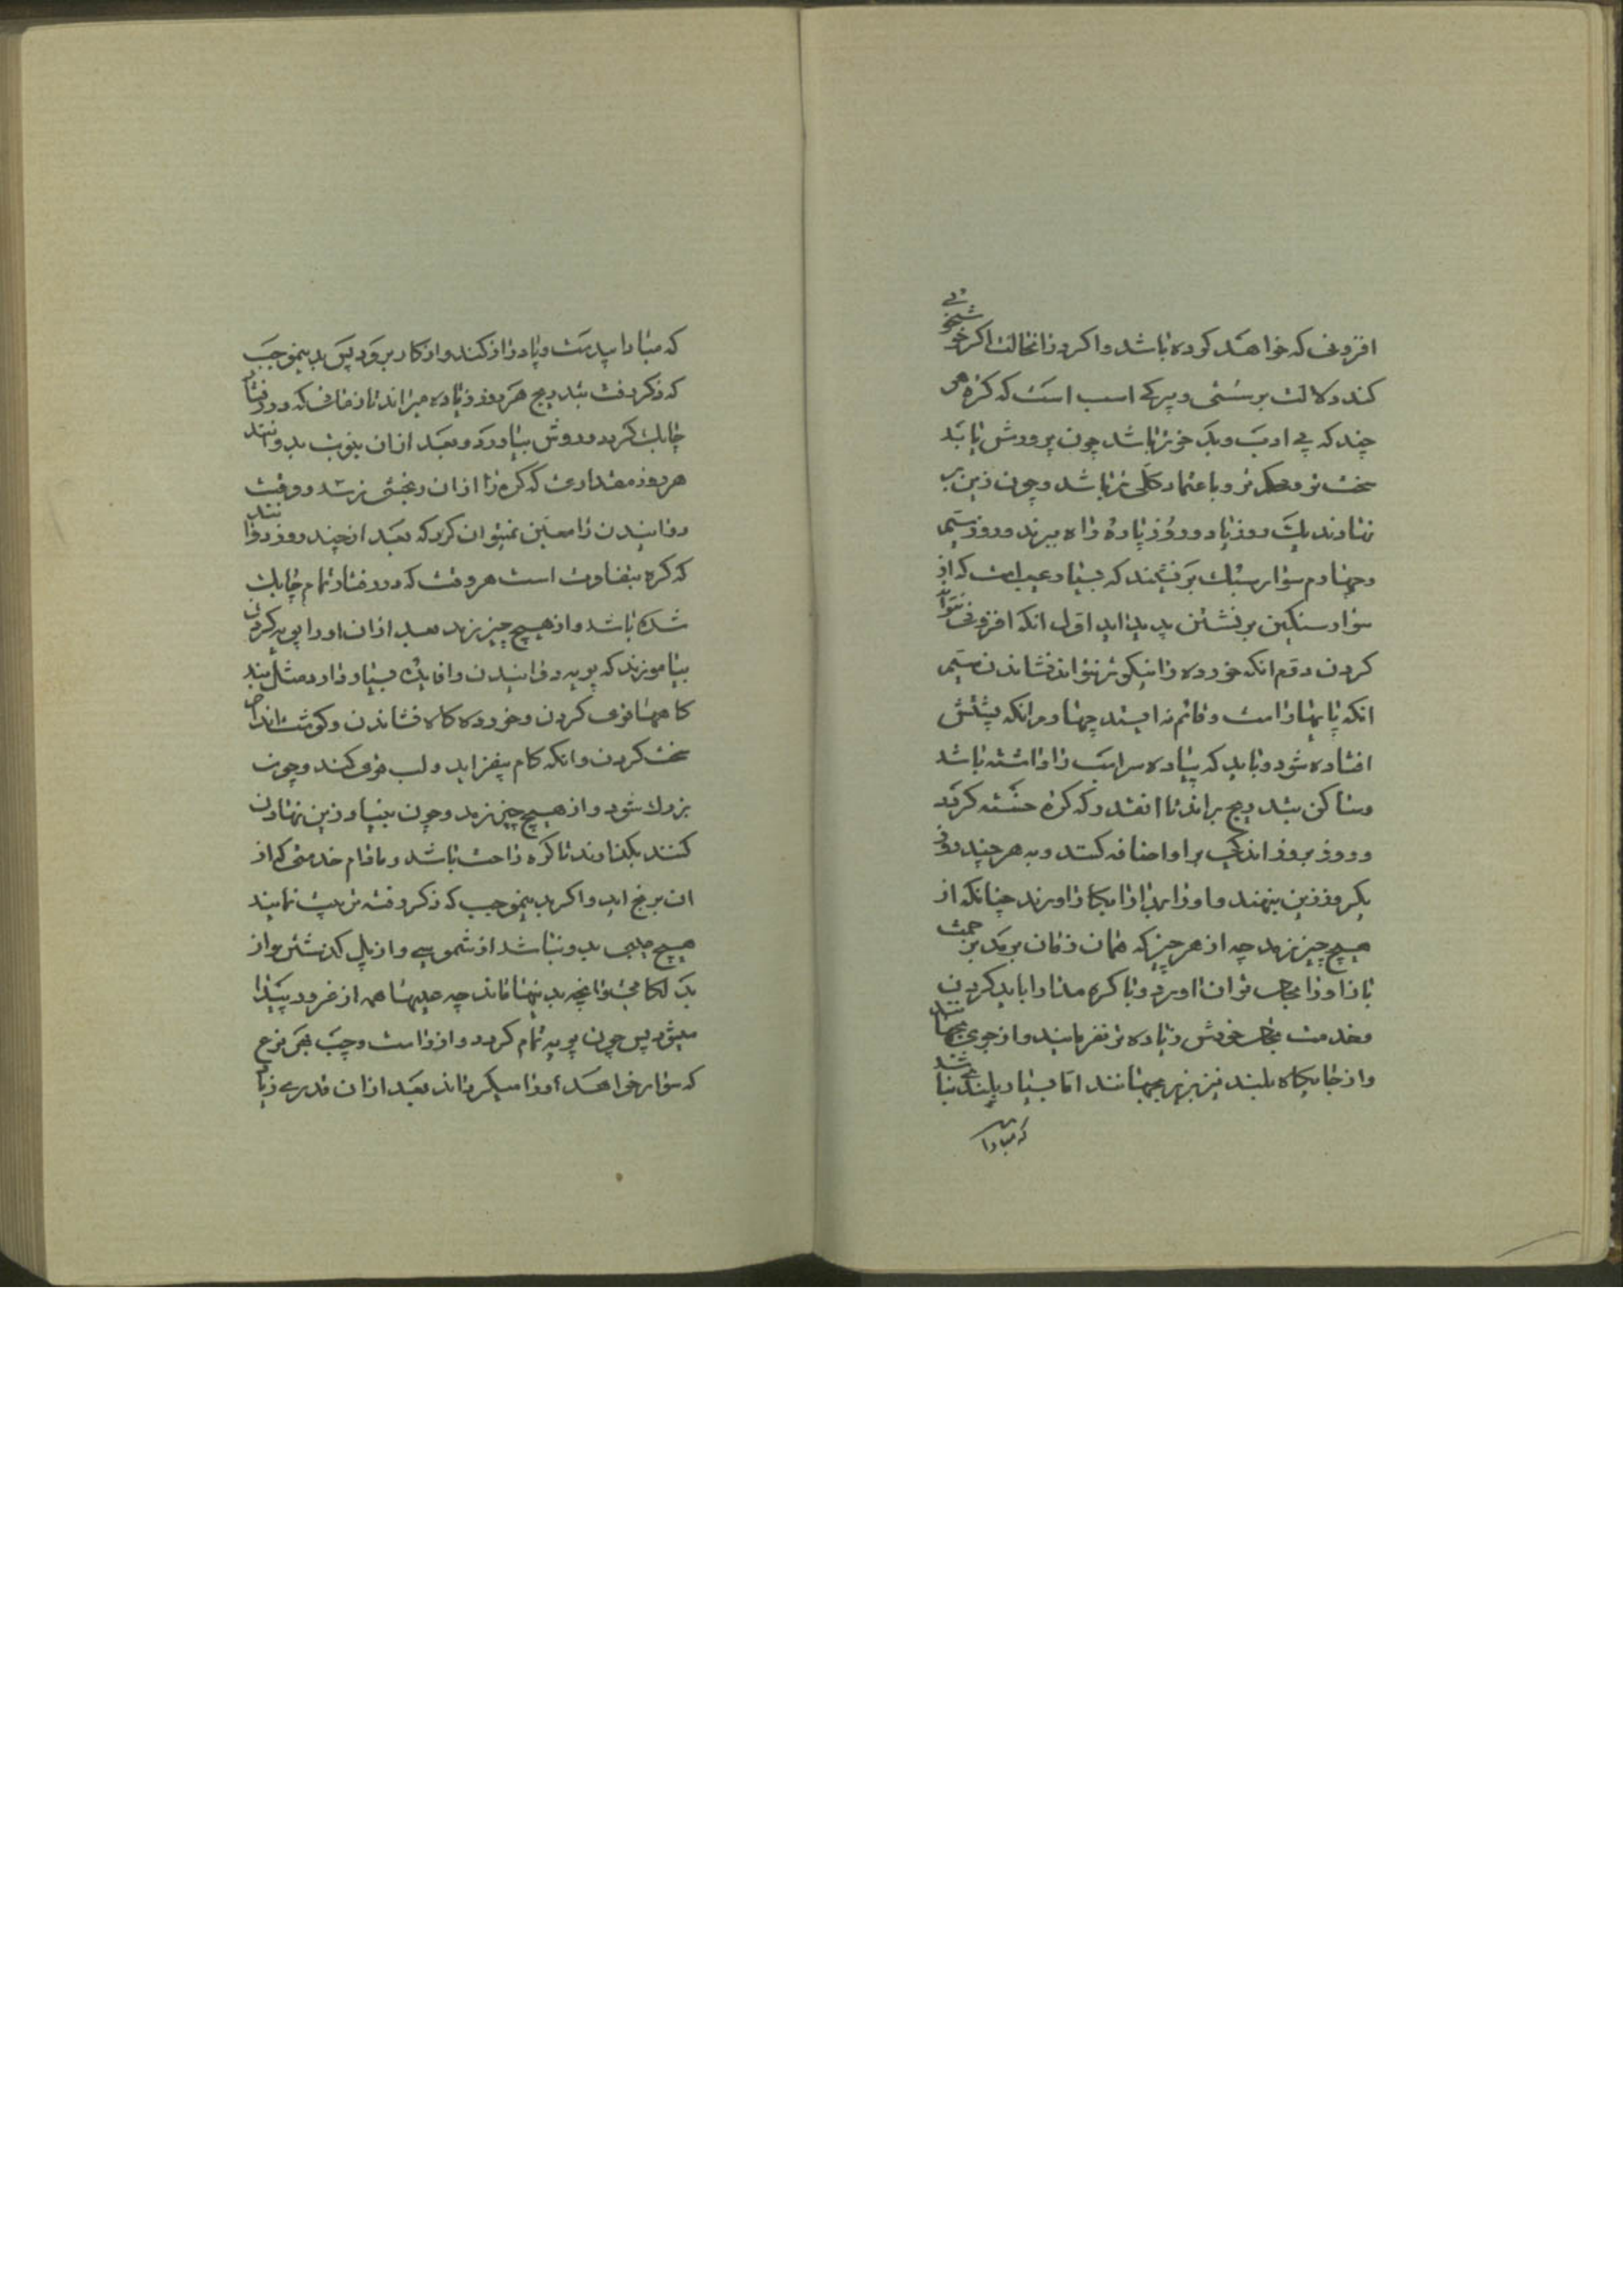 افزونی که خواهد کوده باشد و اکر در انحالت اکر خوشخوئی
کند دلالت بر سستی و پیرکی اسب است که کره هر
چند که بی ادب و بد خوتر باشد چون پرورش یابد
سخت تر و محکم تر و با عتماد کلی تر باشد و چون زین بر
نهادند یک روز یا دو روز پاره راه برند و روز سیم
و چهارم سوار سبک بر نشیند که بسیار عیبها است که از
سوار سنکین بر نشستن پدید اید اول انکه افزونی نتواند
کردن دوم انکه خورده را نیکوتر نتواند نشاندن سیم
انکه پایها راست و قائم نه ایستد چهارم انکه پشتش
افتاده شود و باید که پیاده سر اسب را داشته باشد
و ساکن بتدریج براند تا انقدر که کره خسته کردد
و روز بروز اندکی برا و اضافه کنند و به هر چند روزی
یکروز زین بنهند و او را بدانجایکاه اورند چنانکه از
هیچ چیز نرمد چه از هر چیز که همان زمان برمد بزحمت
باز او را بجای توان اورد و با کره مدارا باید کردن
و خدمت بجای خودش زیاده تر نفرمایند و از جوی بجهانند
و از جایکاه بلند نیز بزیر بجهانند اما بسیار بلند نباشد
که مبادا
که مبادا بپد مست و پا دراز کند و از کار برود پس بدینموجب
که ذکر رفت بتدریج هر روز زیاده میراند تا زمانی که در رفتار
چابک کردد و روش بیاورد و بعد از ان بنوبت بدوانند
هر روز مقداری که کره را از ان رنجشی نرسد و وقت
دوانیدن را معین نمیتوان کرد که بعد از چند روز دوانند
که کره بتفاوت است هر وقت که در رفتار تمام چابک
شده باشد و از هیچ چیز نرمد بعد از ان او را پویه کردن
بیاموزند که پویه دوانیدن را فایده بسیار دارد مثل بند
کاهها قوی کردن و خورده کاه نشاندن و کوشت اندام
سخت کردن و انکه کام بیفزاید و لب قوی کند و چون
بزرك شود و از هیچ چیز نرمد و چون بنیاد زین نهادن
کنند بکذارند تا کره راحت باشد و مادام خدمتی که از
ان برنج اید و اکر بدینموجب که ذکر رفته تربیت نمایند
هیچ عیبی بدو نباشد از شموسی و از پل کذشتن و از
بد لکامی و انچه بدینها ماند چه عیبها همه از خرد پیدا
میشود پس چون پویه تمام کردد و از راست و چپ بهر نوع
که سوار خواهد او را میکرداند بعد از ان قدری زیاد